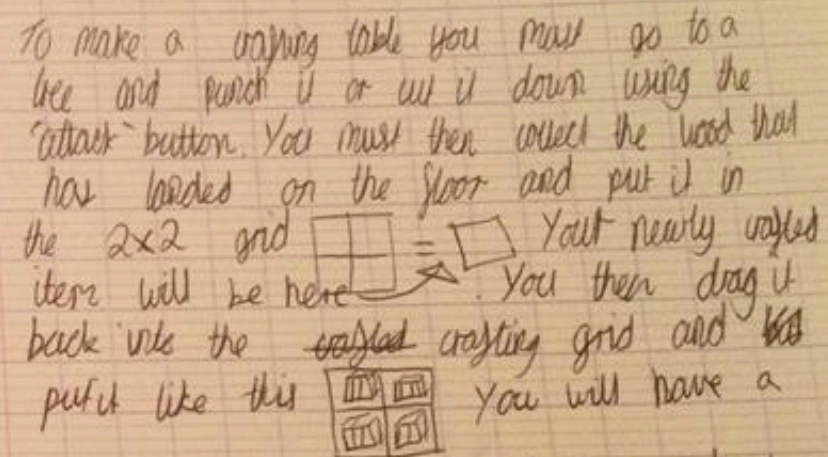 To make a crafting table you must go to a
tree and punch it or cut it down using the
"attack" button. You must then collect the wood that
has landed on the floor and put it in
the 2x2 grid = Your newly crafted
item will be here. You then drag it
back into the crafted crafting grid and
put it like this You will have a